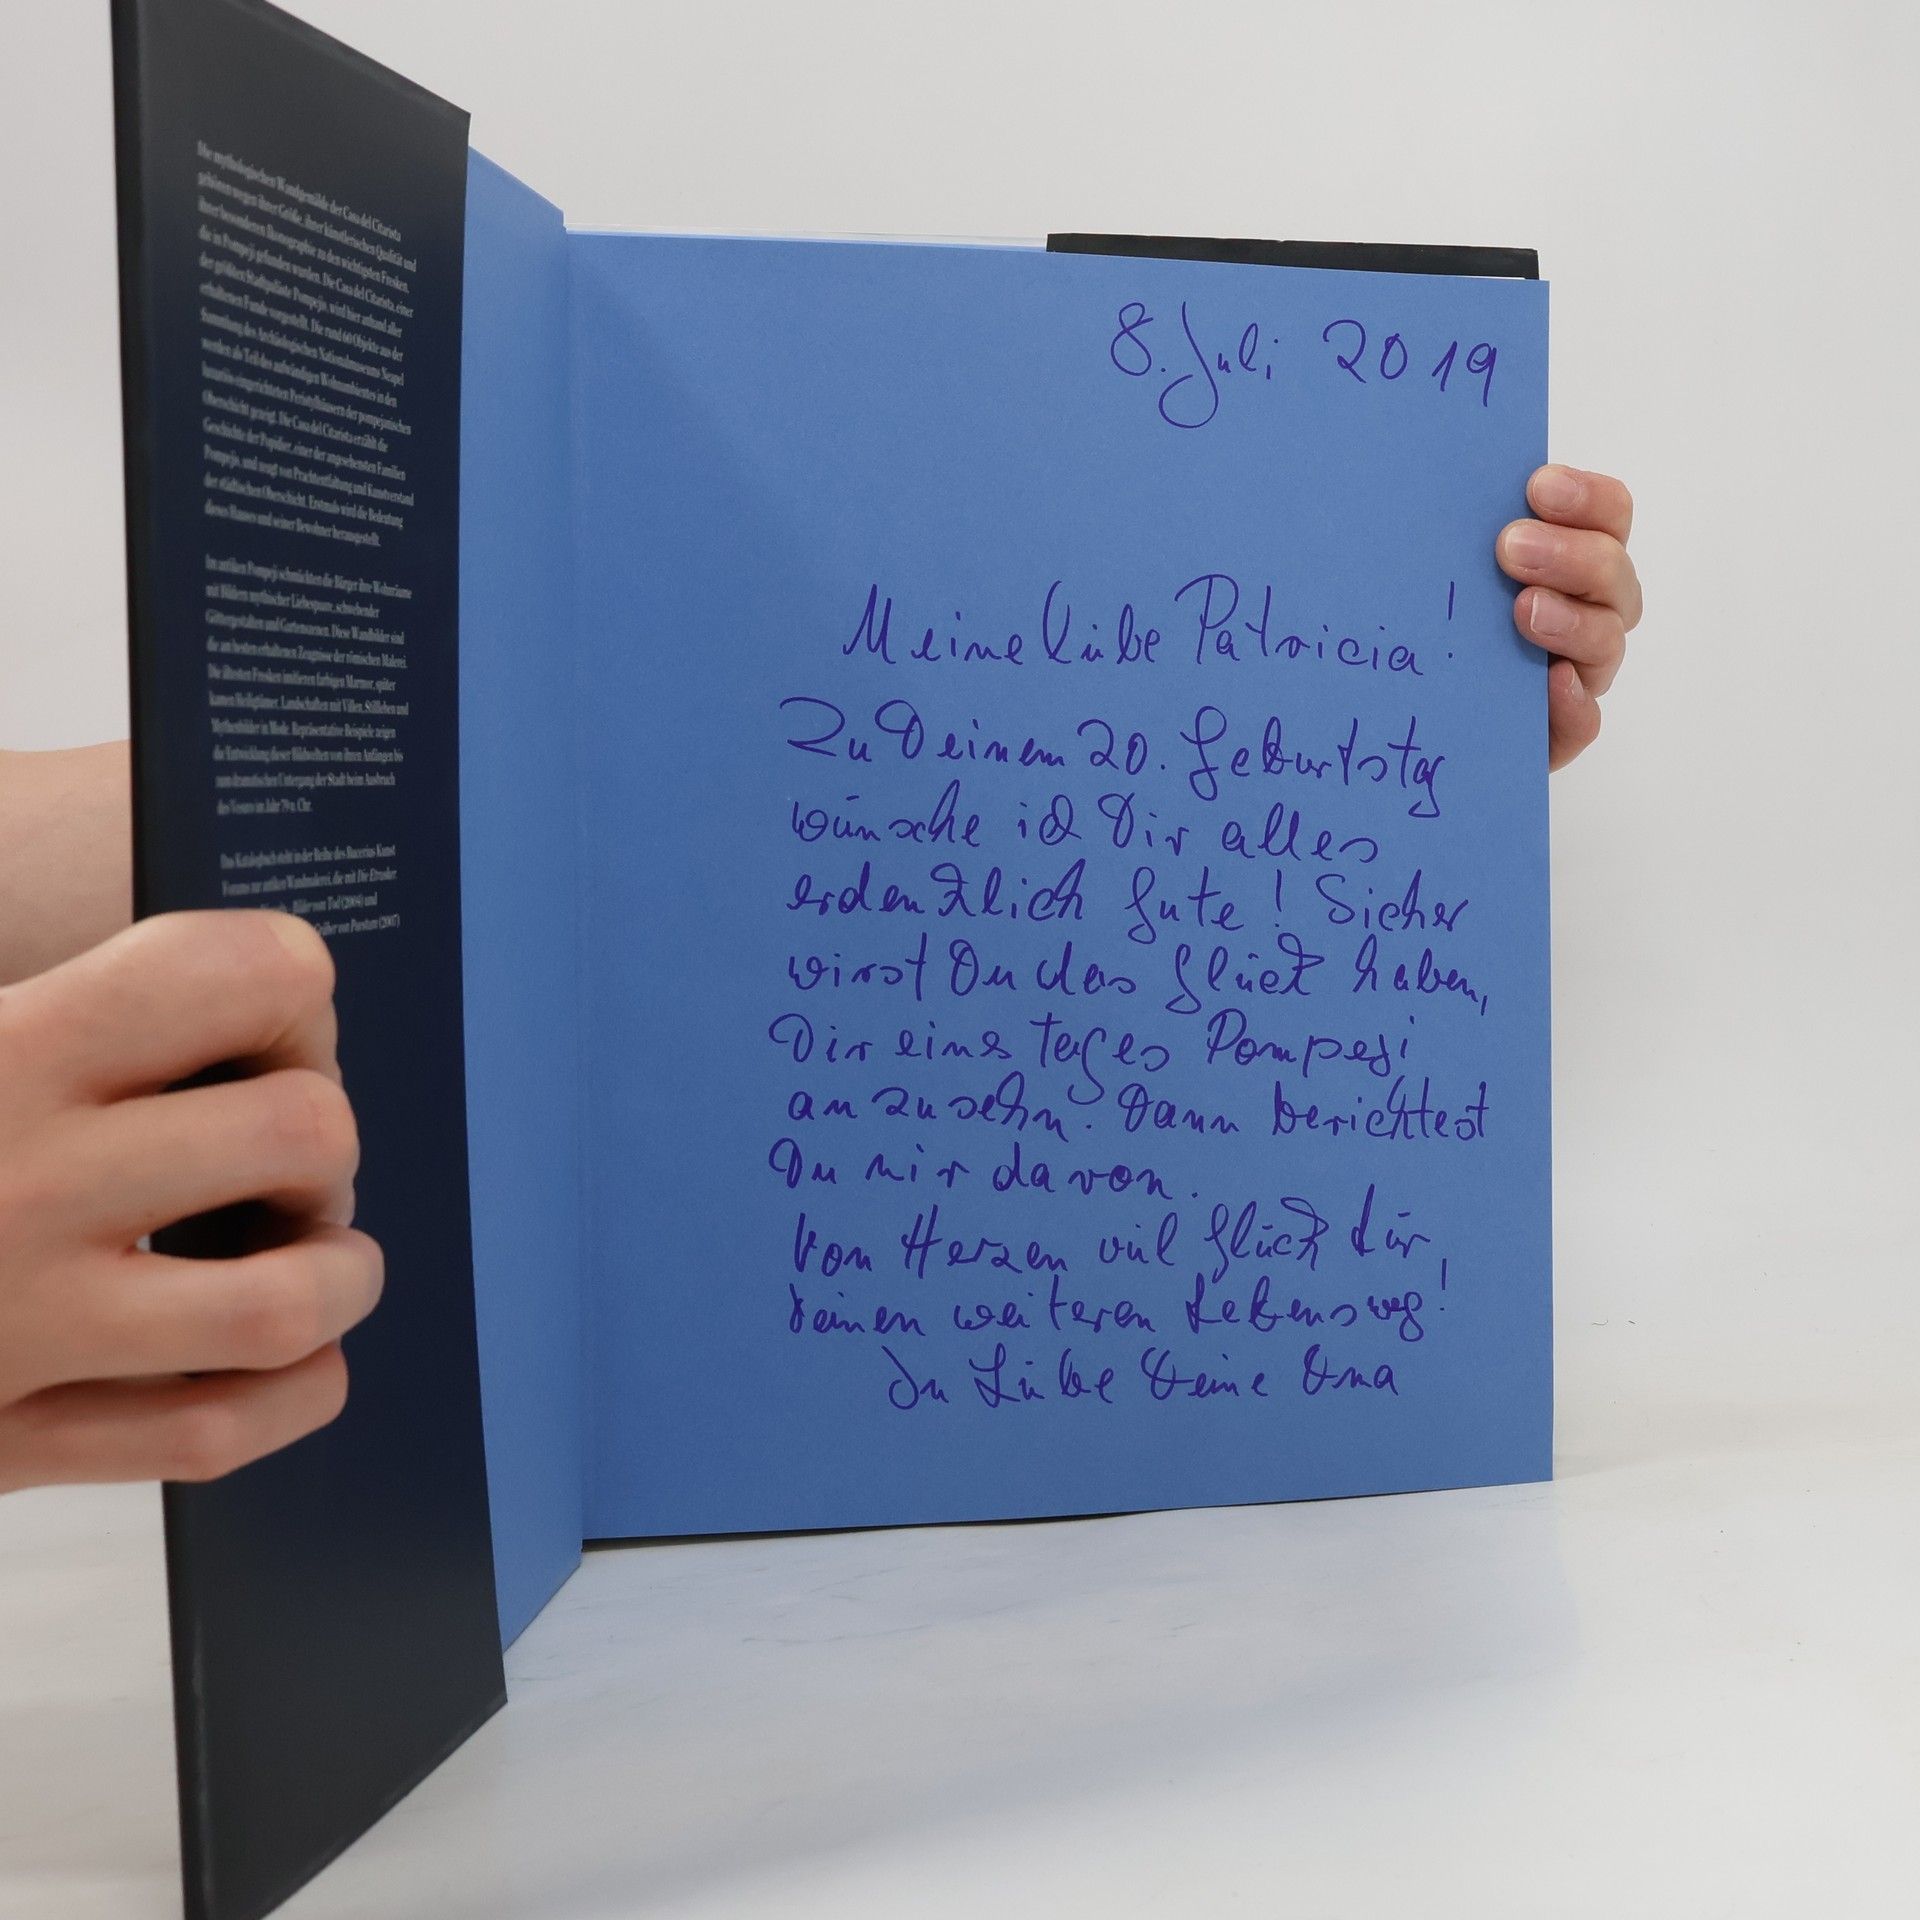 Die mythologischen Wandgemälde der Casa del Citarista
gehören wegen ihrer Größe, ihrer künstlerischen Qualität und
ihrer besonderen Ikonographie zu den wichtigsten Fresken,
die in Pompeji gefunden wurden. Die Casa del Citarista, einer
der größten Stadtpaläste Pompejis, wird hier anhand aller
erhaltenen Funde vorgestellt. Die rund 60 Objekte aus der
Sammlung des Archäologischen Nationalmuseums Neapel
werden als Teil des aufwändigen Wohnambientes in den
luxuriös eingerichteten Peristylhäusern der pompejanischen
Oberschicht gezeigt. Die Casa del Citarista erzählt die
Geschichte der Popidier, einer der angesehensten Familien
Pompejis, und zeugt von Prachtentfaltung und Kunstverstand
der städtischen Oberschicht. Erstmals wird die Bedeutung
dieses Hauses und seiner Bewohner herausgestellt.
Im antiken Pompeji schmückten die Bürger ihre Wohnräume
mit Bildern mythischer Liebespaare, schwebender
Göttergestalten und Gartenszenen. Diese Wandbilder sind
die am besten erhaltenen Zeugnisse der römischen Malerei.
Die ältesten Fresken imitieren farbigen Marmor, später
kamen Heiligtümer, Landschaften mit Villen, Stillleben und
Mythenbilder in Mode. Repräsentative Beispiele zeigen
die Entwicklung dieser Bildwelten von ihren Anfängen bis
zum dramatischen Untergang der Stadt beim Ausbruch
des Vesuvs im Jahr 79 n. Chr.
Das Katalogbuch steht in der Reihe des Bucerius Kunst
Forums zur antiken Wandmalerei, die mit Die Etrusker.
Bilder vom Tod (2004) und
Gräber von Paestum (2007)
8. Juli 2019
Meine liebe Patricia!
Zu Deinem 20. Geburtstag
wünsche ich Dir alles
erdenklich Gute! Sicher
wirst Du das Glück haben,
Dir eines Tages Pompeji
anzusehn. Dann berichtest
Du mir davon.
Von Herzen viel Glück für
Deinen weiteren Lebensweg!
In Liebe Deine Oma